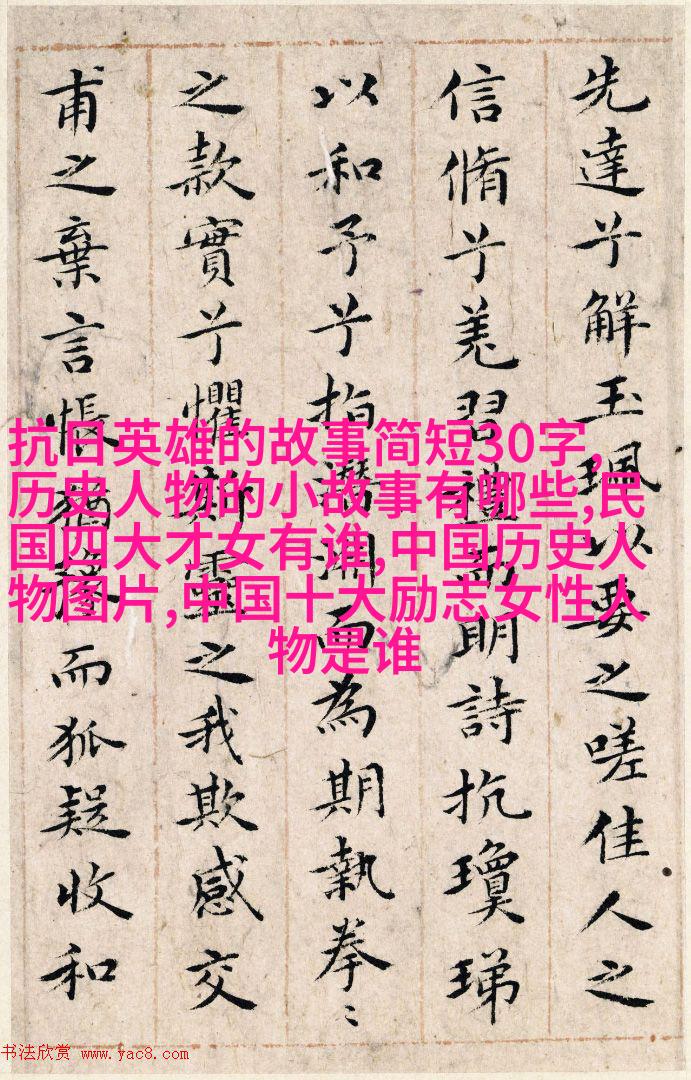 先達兮解玉珮以要之嗟佳人之
信脩兮羌習禮而明詩抗瓊珶
以和予兮指潛淵而為期執拳〻
之款實兮懼斯靈之我欺感交
甫之棄言悵猶豫而狐疑收和
抗日英雄的故事简短30字,
历史人物的小故事有哪些,民
国四大才女有谁,中国历史人
物图片,中国十大励志女性人
物是谁
书法欣赏 www.yac8.com